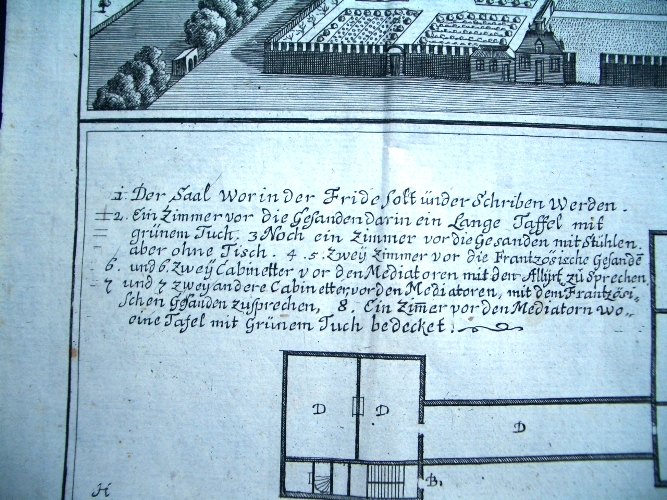 1. Der Saal Worin der Fride solt ünder Schriben Werden.
2. Ein Zimmer vor die Gesanden darin ein Lange Taffel mit
grünem Tuch. 3 Noch ein Zimmer vor die Gesanden mit Stühlen.
aber ohne Tisch. 4. 5. Zweÿ Zimmer vor die Frantzösische Gesandē
6. und 6. Zweÿ Cabinetter, vor den Mediatoren mit den Allijrt. zu Sprechen,
7 und 7 zweÿ andere Cabinetter, vor den Mediatoren, mit dem Frantzösi-
schen Gesanden zusprechen, 8. Ein Zim̄er vor den Mediatorn wo-
eine Tafel mit Grünem Tuch bedecket.
D D
D
I
B.
H